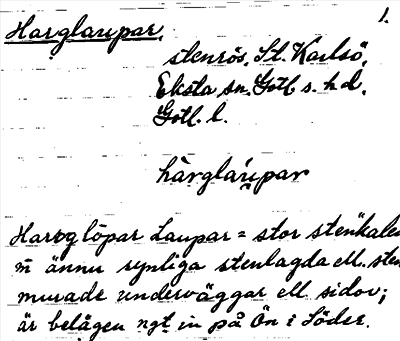 Harglaupar.
1.
stenrös, St. Karlsö,
Eksta sn. Gotl. s. hd.
Gotl. l.
hàrglaúpar
Haroglöpar Laupar = stor stenkalen
m̄ ännu synliga stenlagda ell. sten
murade underväggar ell. sidor;
är belägen ngt in på Ön i Söder.